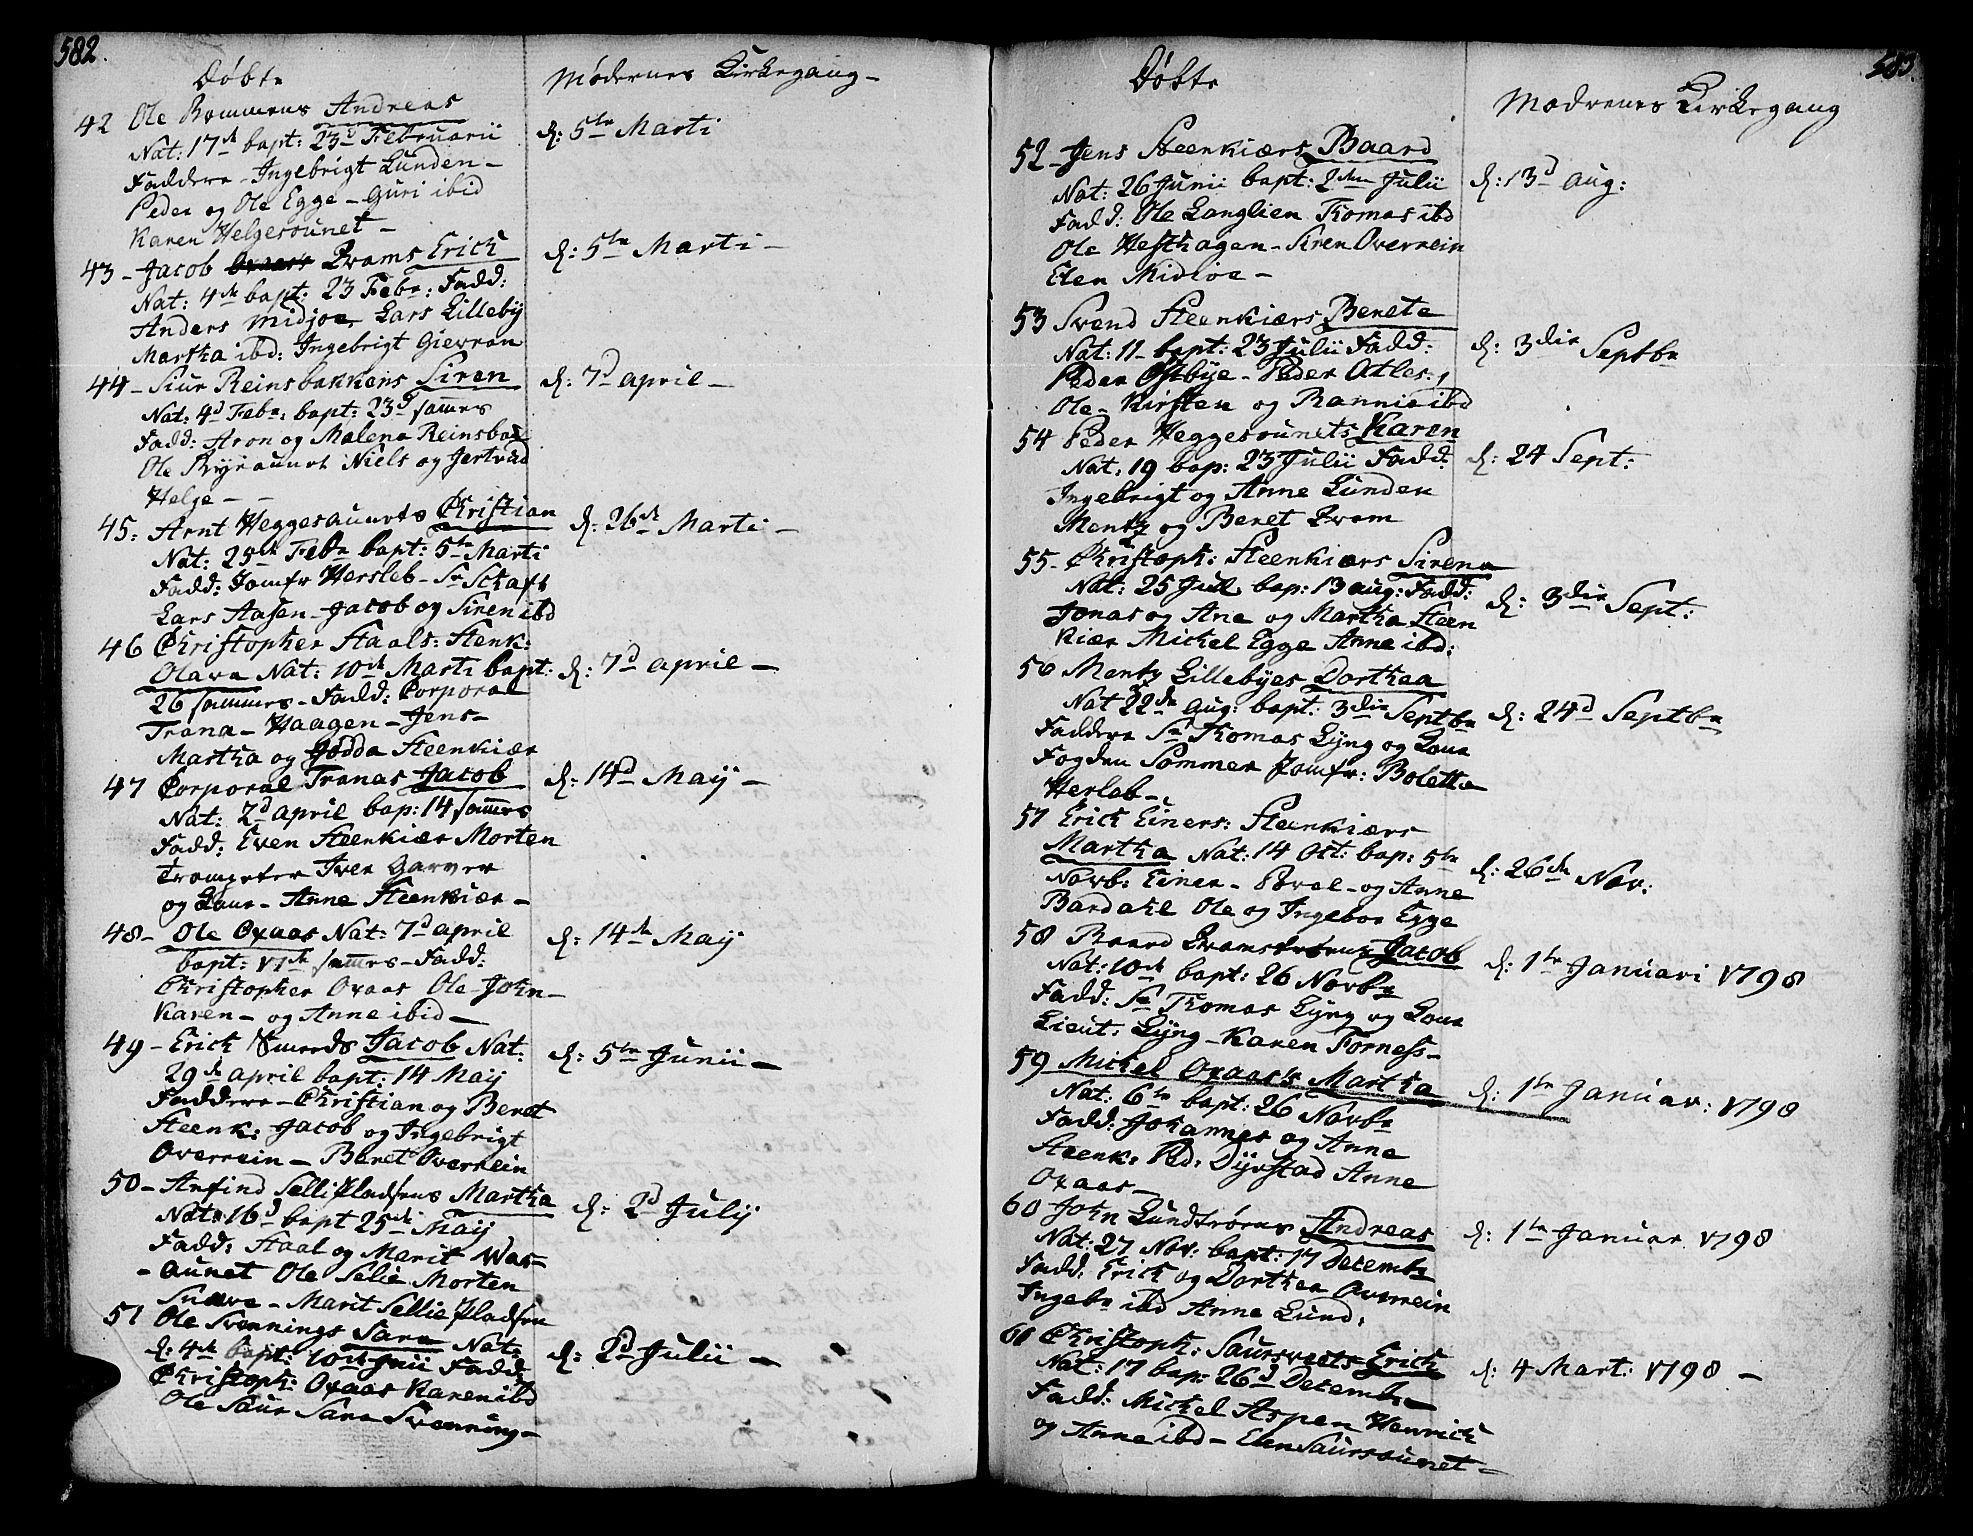 582.
Döbte
Mödernes Kirkegang -
42 Ole Rommens Andreas
Nat: 17de bapt: 23d Februarii
d: 5te Marti
Faddere - Ingebrigt Lunden -
Peder og Ole Egge - Guri ibid
Karen Helgesounet -
43 - Jacob Qvams Erich
d: 5te Marti -
Nat: 4de bapt: 23 Febr: Fadd:
Anders Midjoe, Lars Lilleby
Martha ibd: Ingebrigt Gievran
44 - Siur Reinsbakkens Siren
d: 7d april -
Nat: 4d Febr: bapt: 23d sames
Fadd: Aron og Malena Reinsbak
Ole Niels og Jertrud
Helge - -
45: Arnt Heggesaunets Christian
d: 26de Marti -
Nat: 25de Febr bapt: 5te Marti
Fadd: Jomfr Hersleb - Sr Schaft
Lars Aasen - Jacob og Siren ibd
46 Christopher Staals: Stenk:
Olava Nat: 10de Marti bapt:
d: 7d april -
26 sammes - Fadd: Corporal
Trana - Haagen - Jens -
Martha og Gödda Steenkiær
47 Corporal Tranas Jacob
d: 14d Maij -
Nat: 2d april bap: 14 sammes
Fadd: Even Steenkiær Morten
Trompeter Iver Garver
og Kone - Anne Steenkiær -
48 - Ole Oxaas Nat: 7d april
d: 14de Maij
bapt: 17de sammes - Fadd:
Christopher Oxaas Ole - John -
Karen - og Anne ibid -
49 - Erich Smeds Jacob Nat:
d: 5te Junii -
29de april bapt: 14 Maij
Faddere - Christian og Beret
Steenk: Jacob og Ingebrigt
Overrein - Beret Overrein
50 - Anfind Sellipladsens Martha
d: 2d Julij
Nat: 16d bapt 25de Maij
Fadd: Staal og Marit Was -
- aunet Ole Selie Morten
Snave - Marit Sellie Pladsen
51 Ole Svennings Sara Nat:
d: 2d Julii -
d: 4de bapt: 10de Junii Fadd:
Christoph: Oxaas Karen ibd
Ole Saur Sara Svenning -
583.
Döbte
Mödrenes Kirkegang
52 - Jens Steenkiærs Baard
d: 13d aug:
Nat: 26 Junii bapt: 2den Julii
Fadd: Ole Langlien Thomas ibd
Ole Hesthagen - Siren Overrein
Elen Midioe -
53 Svend Steenkiærs Berete
d: 3die Septbr
Nat: 11 - bapt: 23 Julii Fadd:
Peder Östbye - Peder Atles:,
Ole - Kirsten og Rannie ibd
54 Peder Heggesounets Karen
d: 24 Sept:
Nat: 19 bap: 23 Julii Fadd:
Ingebrigt og Anne Lunden
Mentz og Beret Qvam
55 - Christoph: Steenkiærs Sirena
d: 3die Sept:
Nat: 25 Jul bap: 13 aug: Fadd:
Jonas og Ane og Martha Steen
kiær Michel Egge Anne ibd:
56 Mentz Lillebyes Dorthea
d: 24d Septbr
Nat 22de aug: bapt: 3die Septbr
Faddere Sr Thomas Lyng og Kone
Fogden Sommer Jomfr: Boletta
Herleb -
57 Erich Einers: Steenkiærs
Martha Nat: 14 Oct: bap: 5te
d: 26de Nov:
Novb: Einer - Povel - og Anne
Bardahl Ole og Ingebor Egge
58 Baard Qvams Jacob
d: 1te Januari 1798
Nat: 10de bapt: 26 Novbr
Fadd: Sr Thomas Lyng og Kone
Lieut: Lyng - Karen Forness -
59 Michel Oxaas's Martha
d: 1te Januar: 1798
Nat: 6te bapt: 26 Novbr
Fadd: Johannes og Anne
Steenk: Ped: Dyrstad Anne
Oxaas -
60 John Lundtröens Andreas
d: 1te Januar 1798
Nat: 27 Nov: bapt: 17 Decembr
Fadd: Erich og Dorthea Overrein
Ingebr ibd Anne Lund:
61 Christoph: Saursveets Erich
d: 4 Mart: 1798 -
Nat: 17 bap: 26d Decemb: -
Fadd: Michel Aspen Henrich
og Anne ibd - Elen Saursounet -